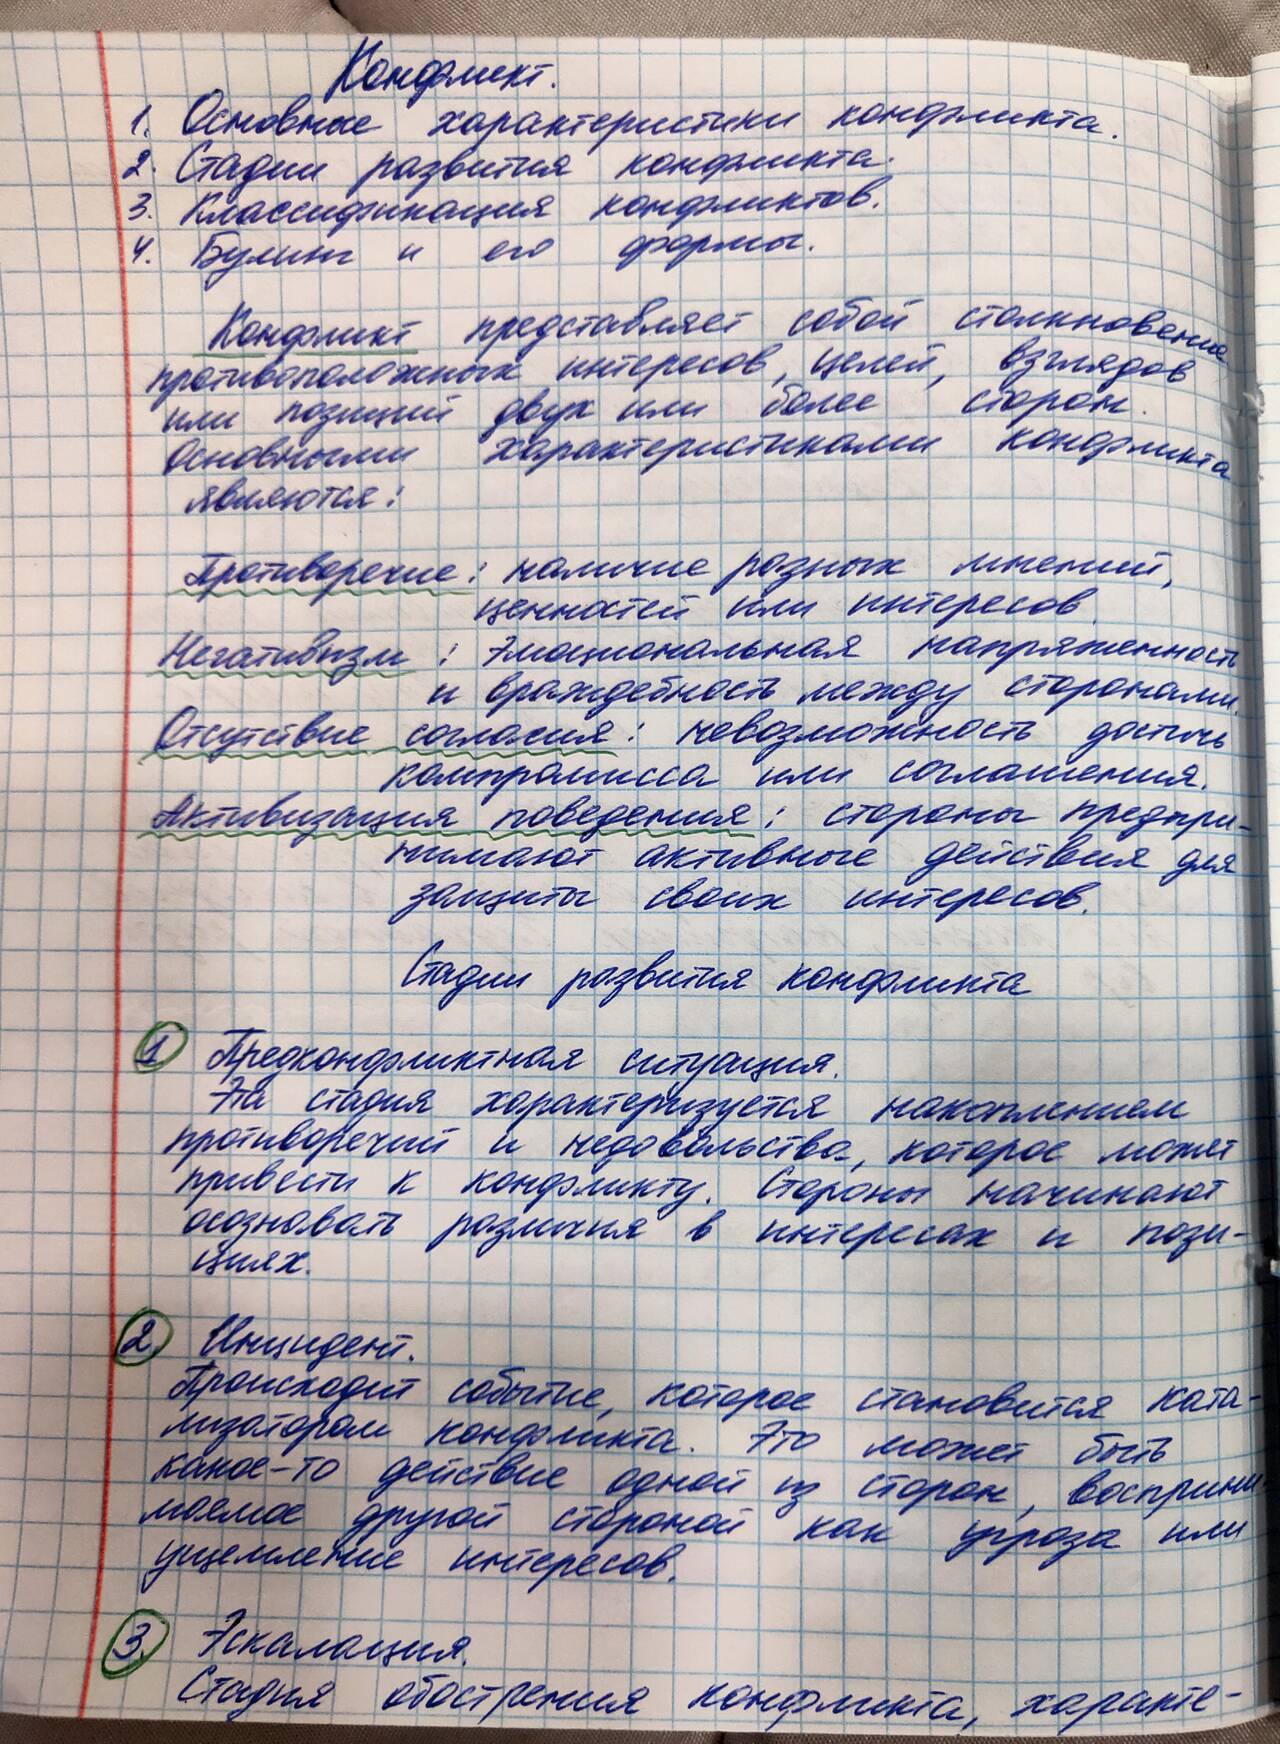 Конфликт.
1. Основные характеристики конфликта.
2. Стадии развития конфликта.
3. Классификация конфликтов.
4. Булинг и его формы.
Конфликт представляет собой столкновение
противоположных интересов, целей, взглядов
или позиций двух или более сторон.
Основными характеристиками конфликта
являются:
Противоречие: наличие разных мнений,
ценностей или интересов.
Негативизм: Эмоциональная напряженность
и враждебность между сторонами.
Отсутствие согласия: невозможность достичь
компромисса или соглашения.
Активизация поведения: стороны предпри-
нимают активные действия для
защиты своих интересов.
Стадии развития конфликта
1 Предконфликтная ситуация.
Эта стадия характеризуется накоплением
противоречий и недовольства, которое может
привести к конфликту. Стороны начинают
осознавать различия в интересах и пози-
циях.
2. Инцидент.
Происходит событие, которое становится ката-
лизатором конфликта. Это может быть
какое-то действие одной из сторон, восприни-
маемое другой стороной как угроза или
ущемление интересов.
3. Эскалация.
Стадия обострения конфликта, характе-